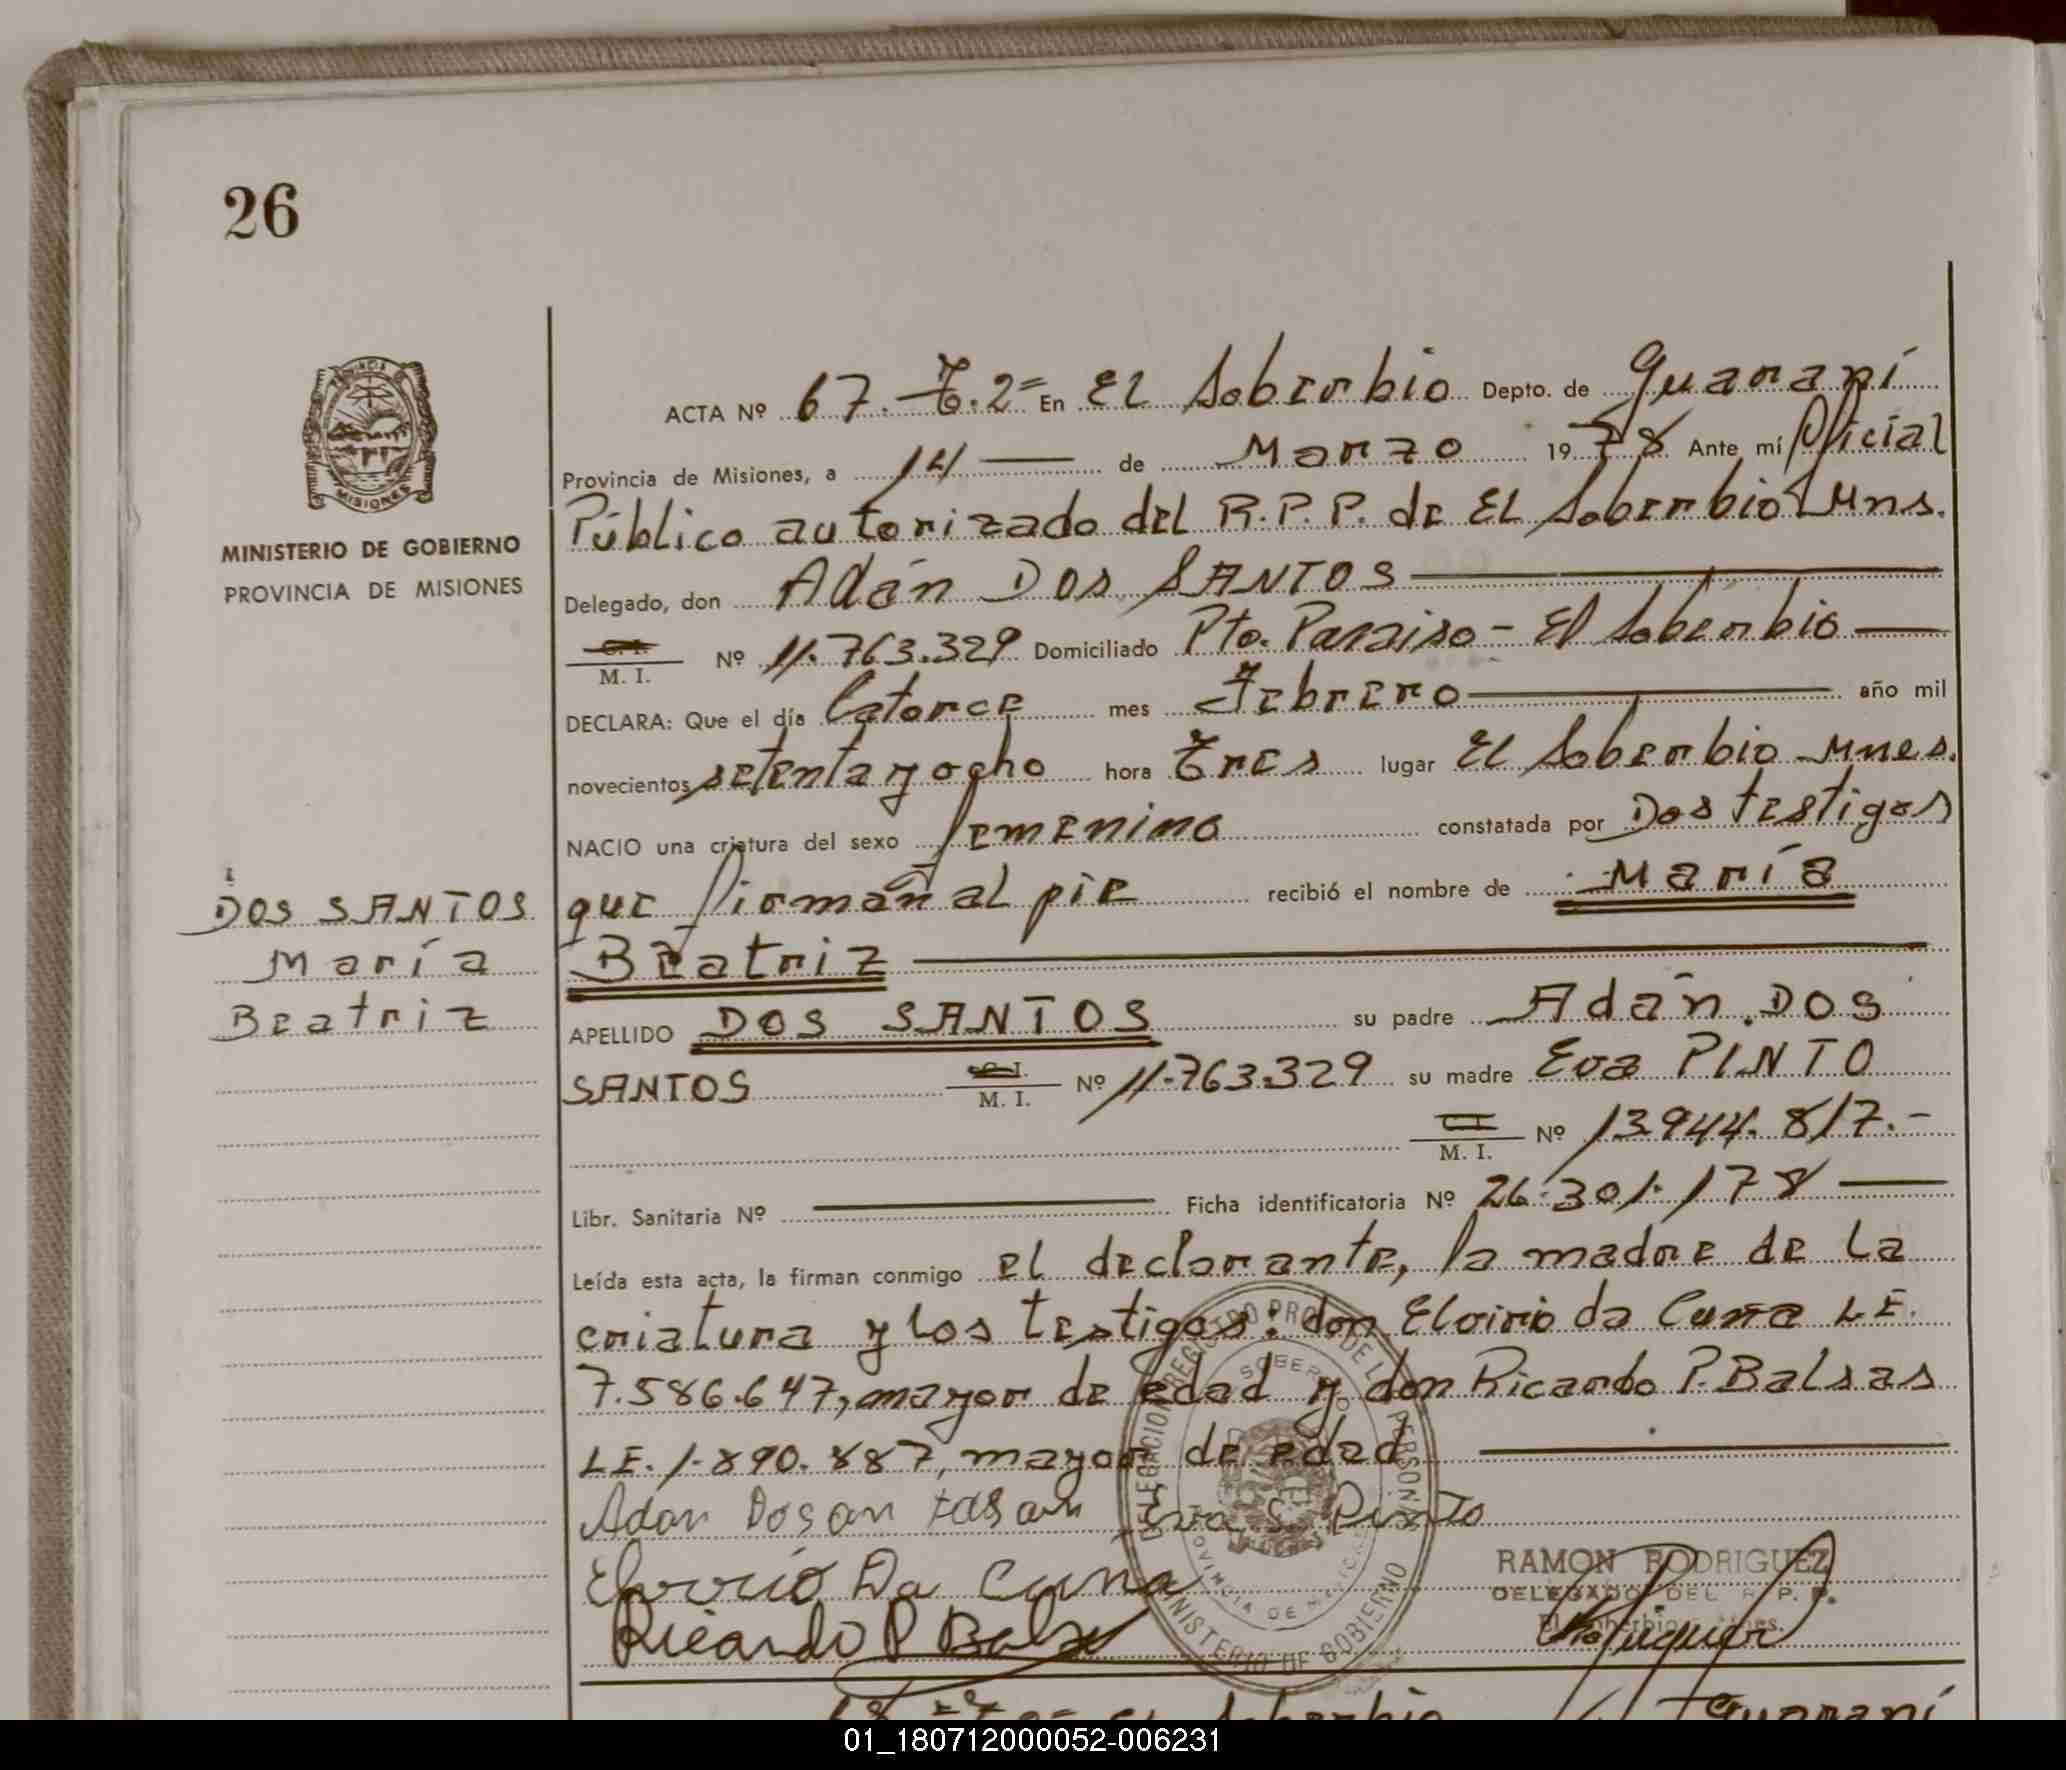 26
MINISTERIO DE GOBIERNO
PROVINCIA DE MISIONES
DOS SANTOS
María
Beatriz
ACTA Nº 67. T.2= En El Soberbio Depto. de Guaraní
Provincia de Misiones, a 14 de Marzo 1978 Ante mí Oficial
Público autorizado del R.P.P. de El Soberbio Mns.
Delegado, don Adán DOS SANTOS
M. I. Nº 11.763.329 Domiciliado Pto. Paraiso - El Soberbio
DECLARA: Que el día Catorce mes Febrero año mil
novecientos setenta y ocho hora Tres lugar El Soberbio Mnes.
NACIO una criatura del sexo femenino constatada por Dos testigos
que firman al pie recibió el nombre de María
Beatriz
APELLIDO DOS SANTOS su padre Adán DOS
SANTOS M. I. Nº 11.763.329 su madre Eva PINTO
M. I. Nº 13.944.817.-
Libr. Sanitaria Nº Ficha identificatoria Nº 26.301.178
Leída esta acta, la firman conmigo el declarante, la madre de la
criatura y los testigos: don Elvirio da Cuna L.E.
7.586.647, mayor de edad y don Ricardo P. Balsas
L.E. 1.890.887, mayor de edad
Adan Dosan tosan Eva S. Pinto
Elvirio Da Cuna
Ricardo P Balsas
RAMON RODRIGUEZ
DELEGADO DEL R. P. P.
El Soberbio
DELEGACION REGISTRO PROV. DE L PERSONAS
SOBERBIO
PROVINCIA DE MISIONES
MINISTERIO DE GOBIERNO
El Soberbio Guaraní
01_180712000052-006231